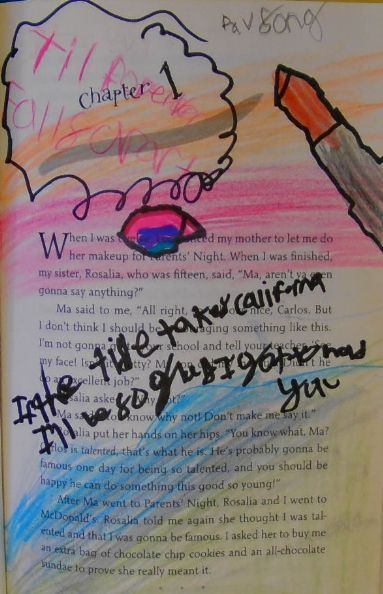 Pav Song
Til
Chapter 1
falls apart
When I was convinced my mother to let me do
her makeup for Parents' Night. When I was finished,
my sister, Rosalia, who was fifteen, said, "Ma, aren't ya even
gonna say anything?"
Ma said to me, "All right, nice, Carlos. But
I don't think I should be encouraging something like this.
I'm not gonna your school and tell your teacher, 'See
my face! Isn't it pretty? My son Didn't he
do an excellent job?'"
Rosalia asked not?"
Ma said, "You know why not! Don't make me say it."
Rosalia put her hands on her hips. "You know what, Ma?
Carlos is talented, that's what he is. He's probably gonna be
famous one day for being so talented, and you should be
happy he can do something this good so young!"
After Ma went to Parents' Night, Rosalia and I went to
McDonald's. Rosalia told me again she thought I was tal-
ented and that I was gonna be famous. I asked her to buy me
an extra bag of chocolate chip cookies and an all-chocolate
sundae to prove she really meant it.
In the tide California
I'm
you